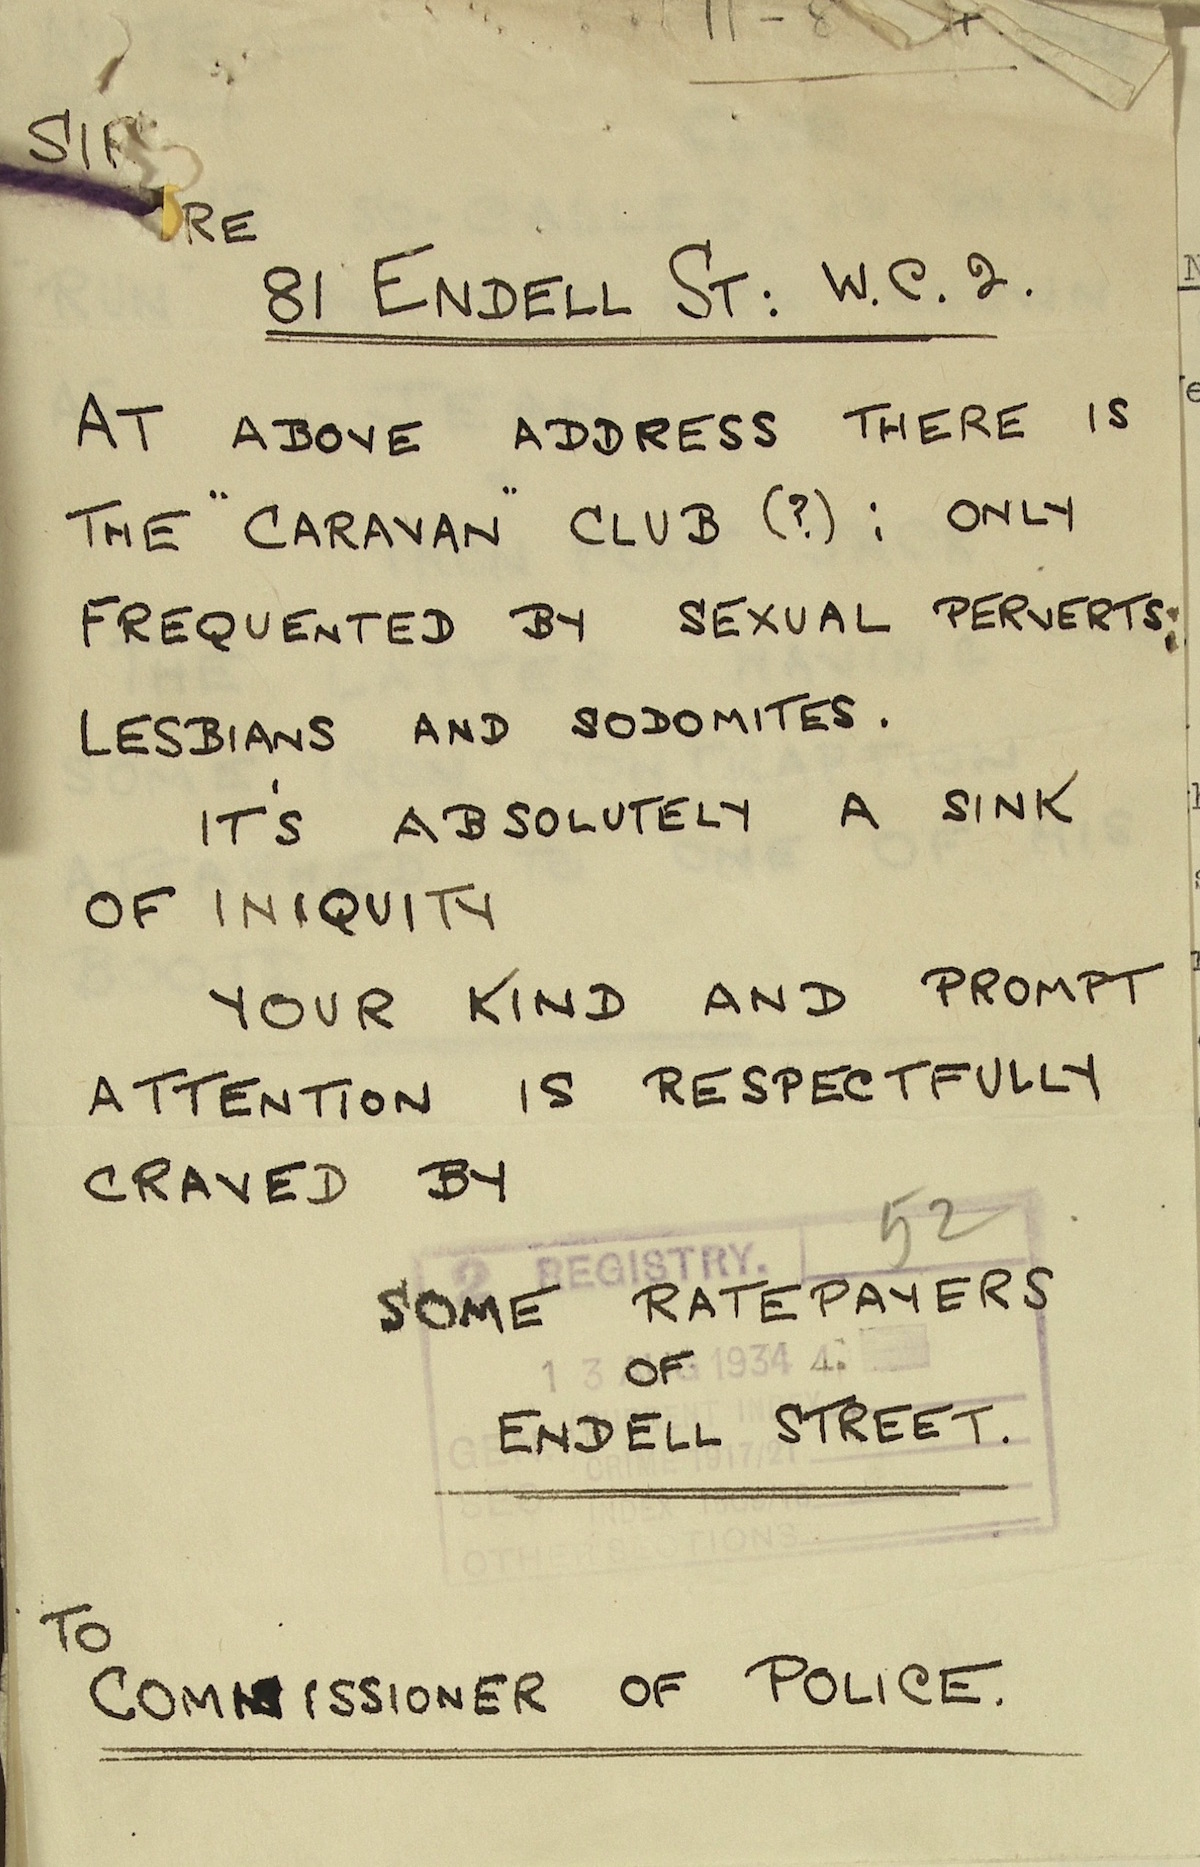 11-8
SIR
RE
81 ENDELL ST: W.C.2.
AT ABOVE ADDRESS THERE IS
THE "CARAVAN" CLUB (?); ONLY
FREQUENTED BY SEXUAL PERVERTS;
LESBIANS AND SODOMITES.
IT'S ABSOLUTELY A SINK
OF INIQUITY
YOUR KIND AND PROMPT
ATTENTION IS RESPECTFULLY
CRAVED BY
52
REGISTRY.
SOME RATEPAYERS
13 AUG 1934
OF
ENDELL STREET.
CRIME 1917/21
INDEX
OTHER SECTIONS
TO
COMMISSIONER OF POLICE.